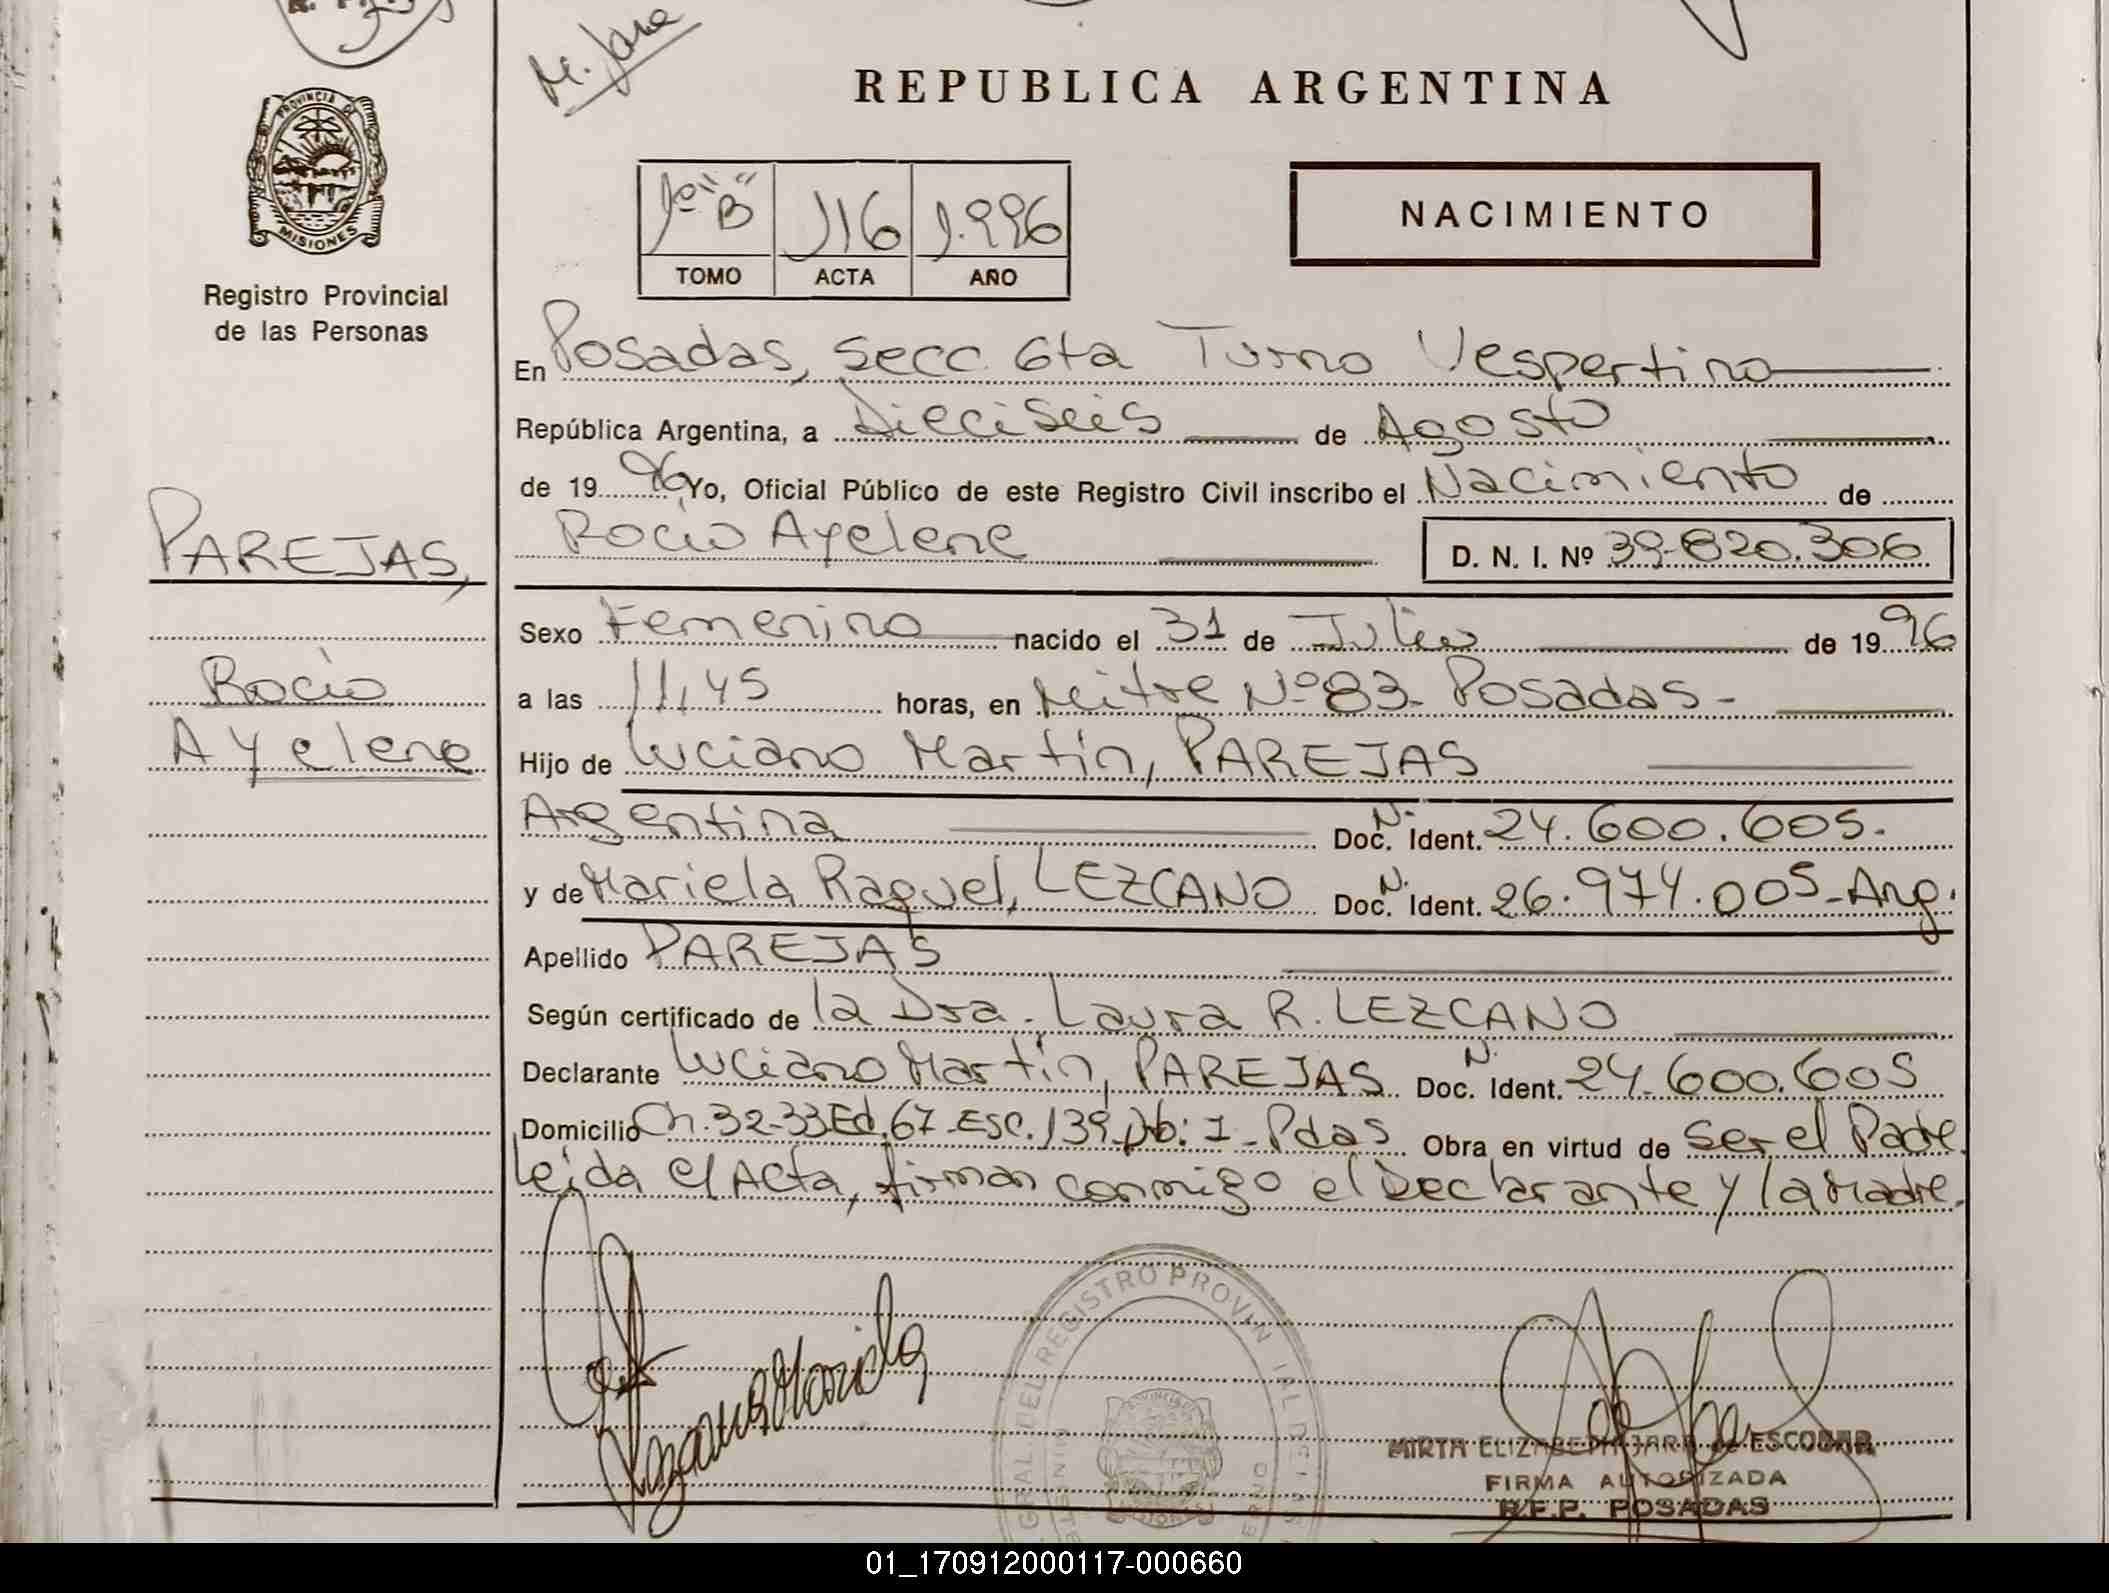 M. Jara
REPUBLICA ARGENTINA
PROVINCIA DE
MISIONES
Registro Provincial
de las Personas
1º "B" 116 1.996
TOMO ACTA AÑO
NACIMIENTO
En Posadas, secc 6ta Turno Vespertino
República Argentina, a Dieciseis de Agosto
de 1996 Yo, Oficial Público de este Registro Civil inscribo el Nacimiento de
Rocio Ayelene D. N. I. Nº 39.820.306
PAREJAS,
Rocio
Ayelene
Sexo Femenino nacido el 31 de Julio de 1996
a las 11,45 horas, en Mitre Nº 83- Posadas-
Hijo de Luciano Martín, PAREJAS
Argentina Doc. N. Ident. 24.600.605.
y de Mariela Raquel, LEZCANO Doc. N. Ident. 26.974.005-Arg.
Apellido PAREJAS
Según certificado de la Dra. Laura R. LEZCANO
Declarante Luciano Martín, PAREJAS Doc. N. Ident. 24.600.605
Domicilio Ch. 32-33 Ed. 67 Esc. 139 Db: 1- Pdas Obra en virtud de ser el Padre.
Leida el Acta, firman conmigo el Declarante y la Madre.
Lezcano Mariela
GRAL. DEL REGISTRO PROVINCIAL
MIRTA ELIZABETH JARA de ESCOBAR
FIRMA AUTORIZADA
R.P.P. POSADAS
01_170912000117-000660